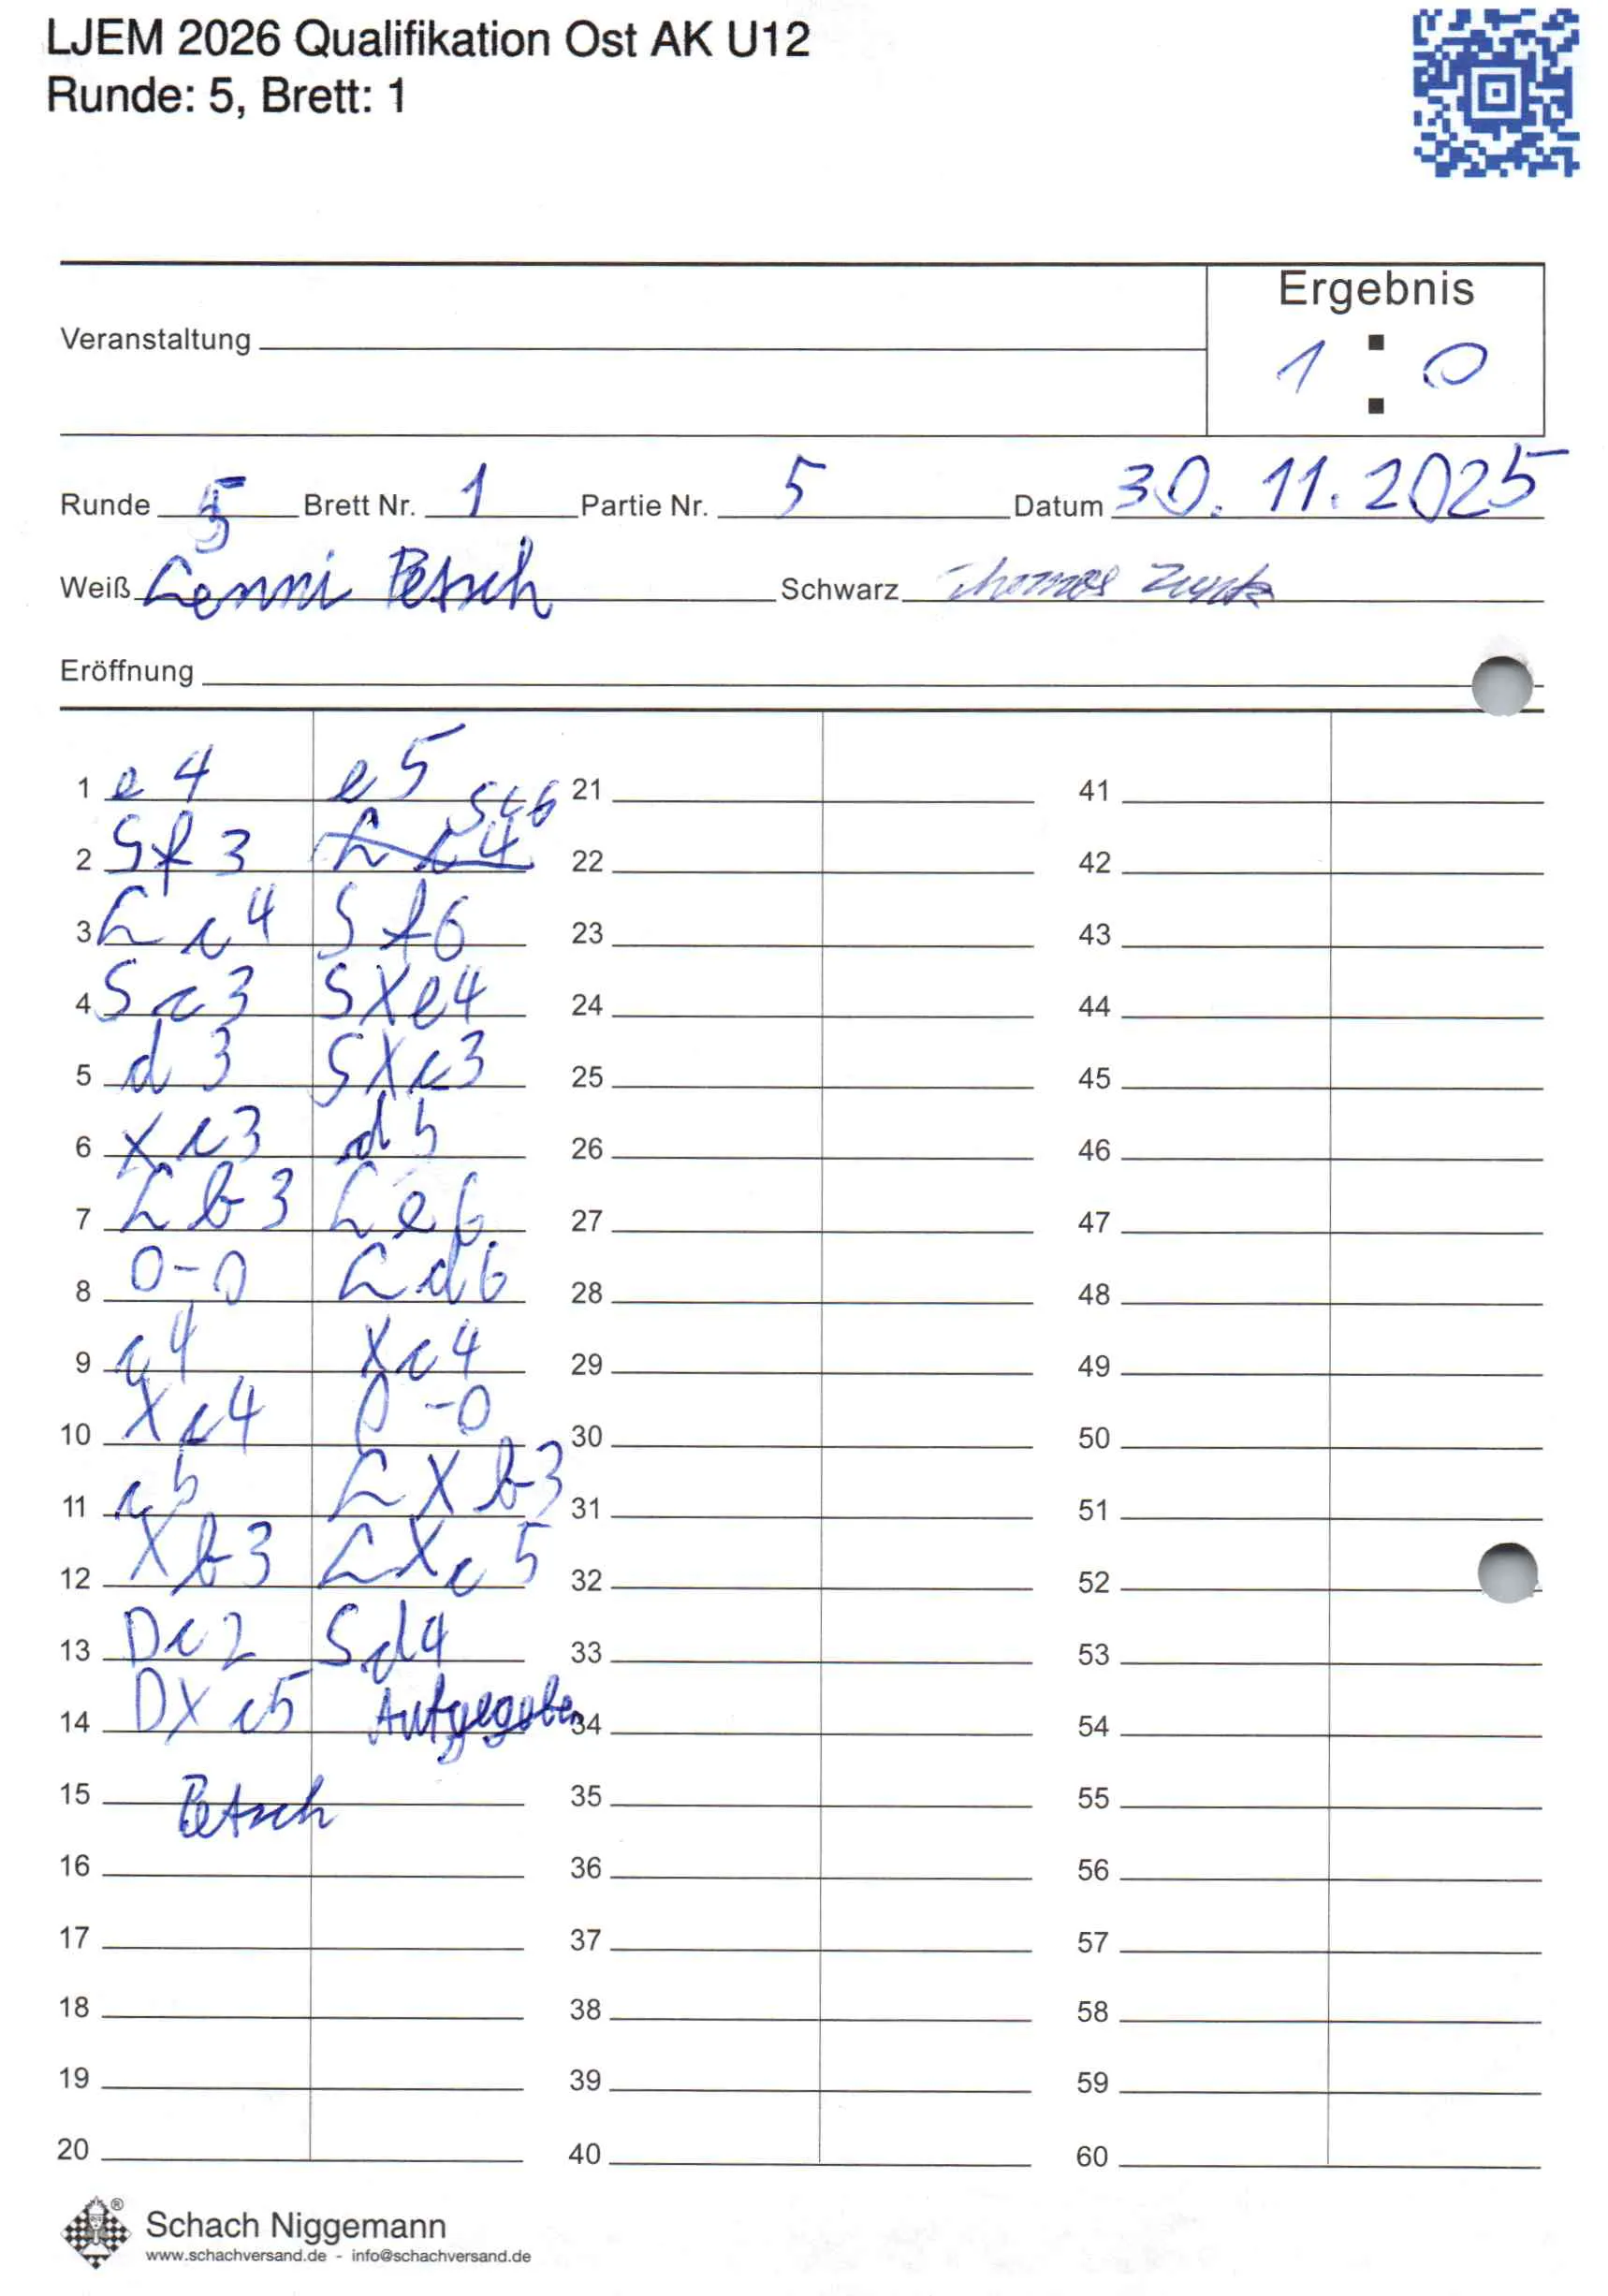 LJEM 2026 Qualifikation Ost AK U12
Runde: 5, Brett: 1
Ergebnis
1 : 0
Veranstaltung
Runde 5 Brett Nr. 1 Partie Nr. 5 Datum 30. 11. 2025
Weiß Lenni Petsch Schwarz Thomas
Eröffnung
1 e4 e5 21 41
Sc6
2 Sf3 Lc4 22 42
3 Lc4 Sf6 23 43
4 Sc3 SXe4 24 44
5 d3 SXc3 25 45
6 Xc3 d5 26 46
7 Lb3 Le6 27 47
8 0-0 Ld6 28 48
9 c4 Xc4 29 49
10 Xc4 0-0 30 50
11 c5 LXb3 31 51
12 Xb3 LXc5 32 52
13 Dc2 Sd4 33 53
14 DXc5 Aufgegeben 34 54
15 Petsch 35 55
16 36 56
17 37 57
18 38 58
19 39 59
20 40 60
® Schach Niggemann
www.schachversand.de - info@schachversand.de